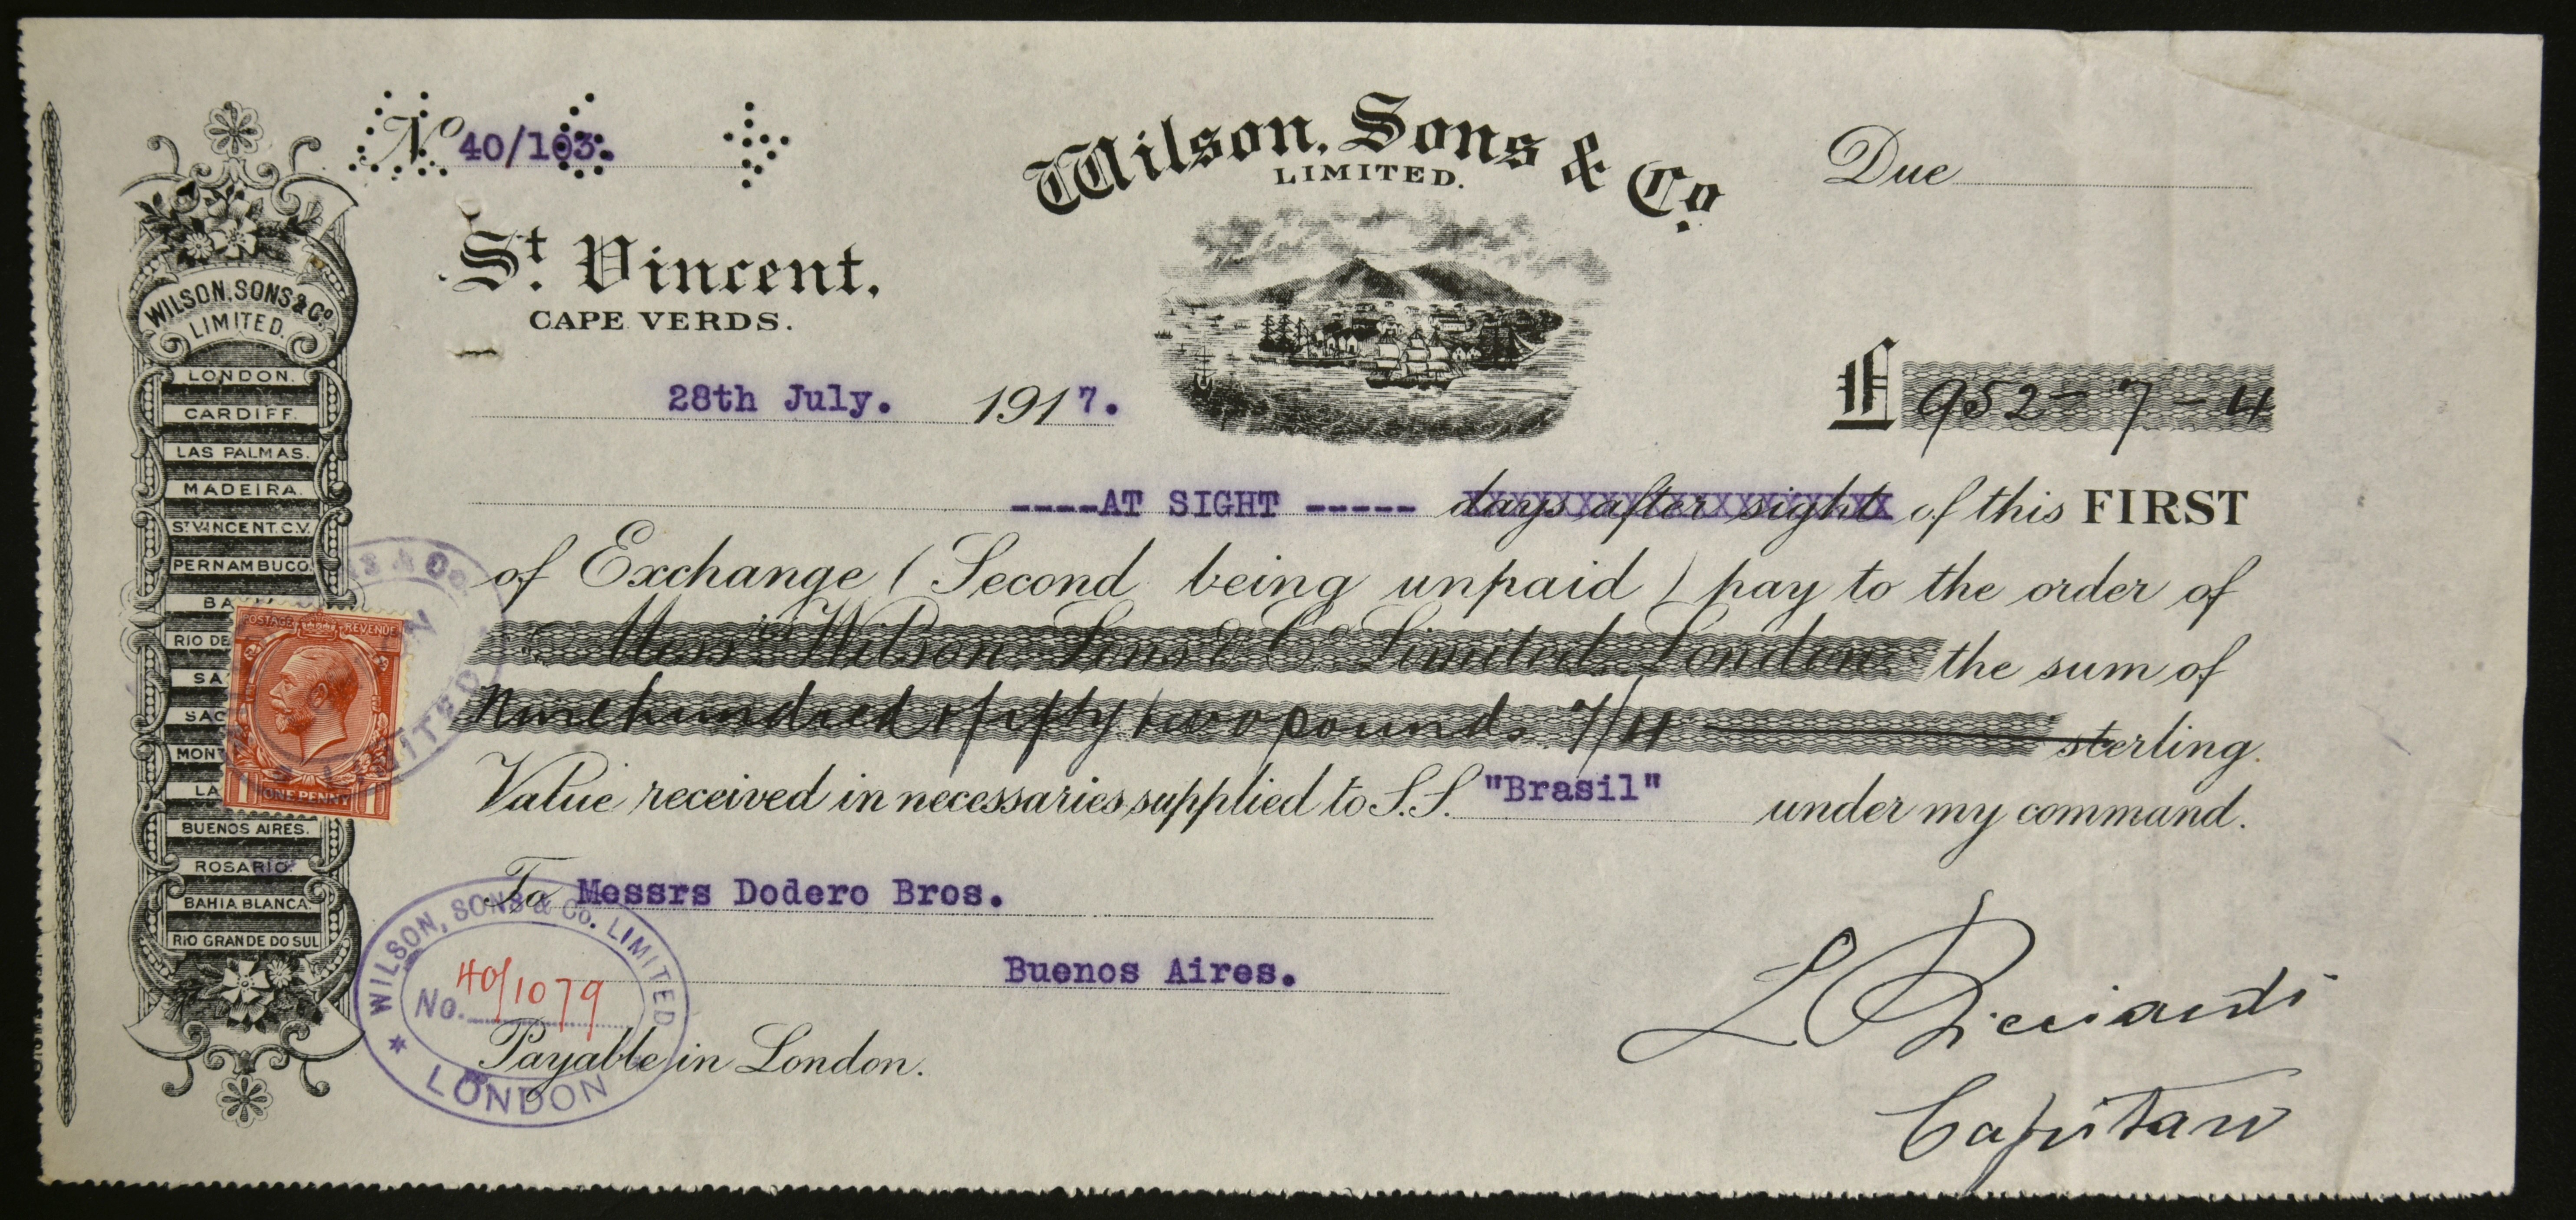 Nº 40/103.
Wilson, Sons & Co.
LIMITED.
Due
St. Vincent,
CAPE VERDS.
28th July. 1917.
£ 952-7-4
----AT SIGHT ----- days after sight of this FIRST
of Exchange (Second being unpaid) pay to the order of
Messrs Wilson Sons & Co Limited London the sum of
Nine hundred & fifty two pounds 7/4 sterling.
Value received in necessaries supplied to S.S. "Brasil" under my command.
To Messrs Dodero Bros.
Buenos Aires.
Payable in London.
Capitano
WILSON, SONS & Co.
LIMITED.
LONDON.
CARDIFF.
LAS PALMAS.
MADEIRA.
ST VINCENT. C.V.
PERNAMBUCO.
BA
RIO DE
SA
SAO
MONT
LA
BUENOS AIRES.
ROSARIO.
BAHIA BLANCA.
RIO GRANDE DO SUL
POSTAGE REVENUE
1 ONE PENNY 1
& Co.
LIMITED
WILSON, SONS & Co. LIMITED
No. 40/1079
LONDON